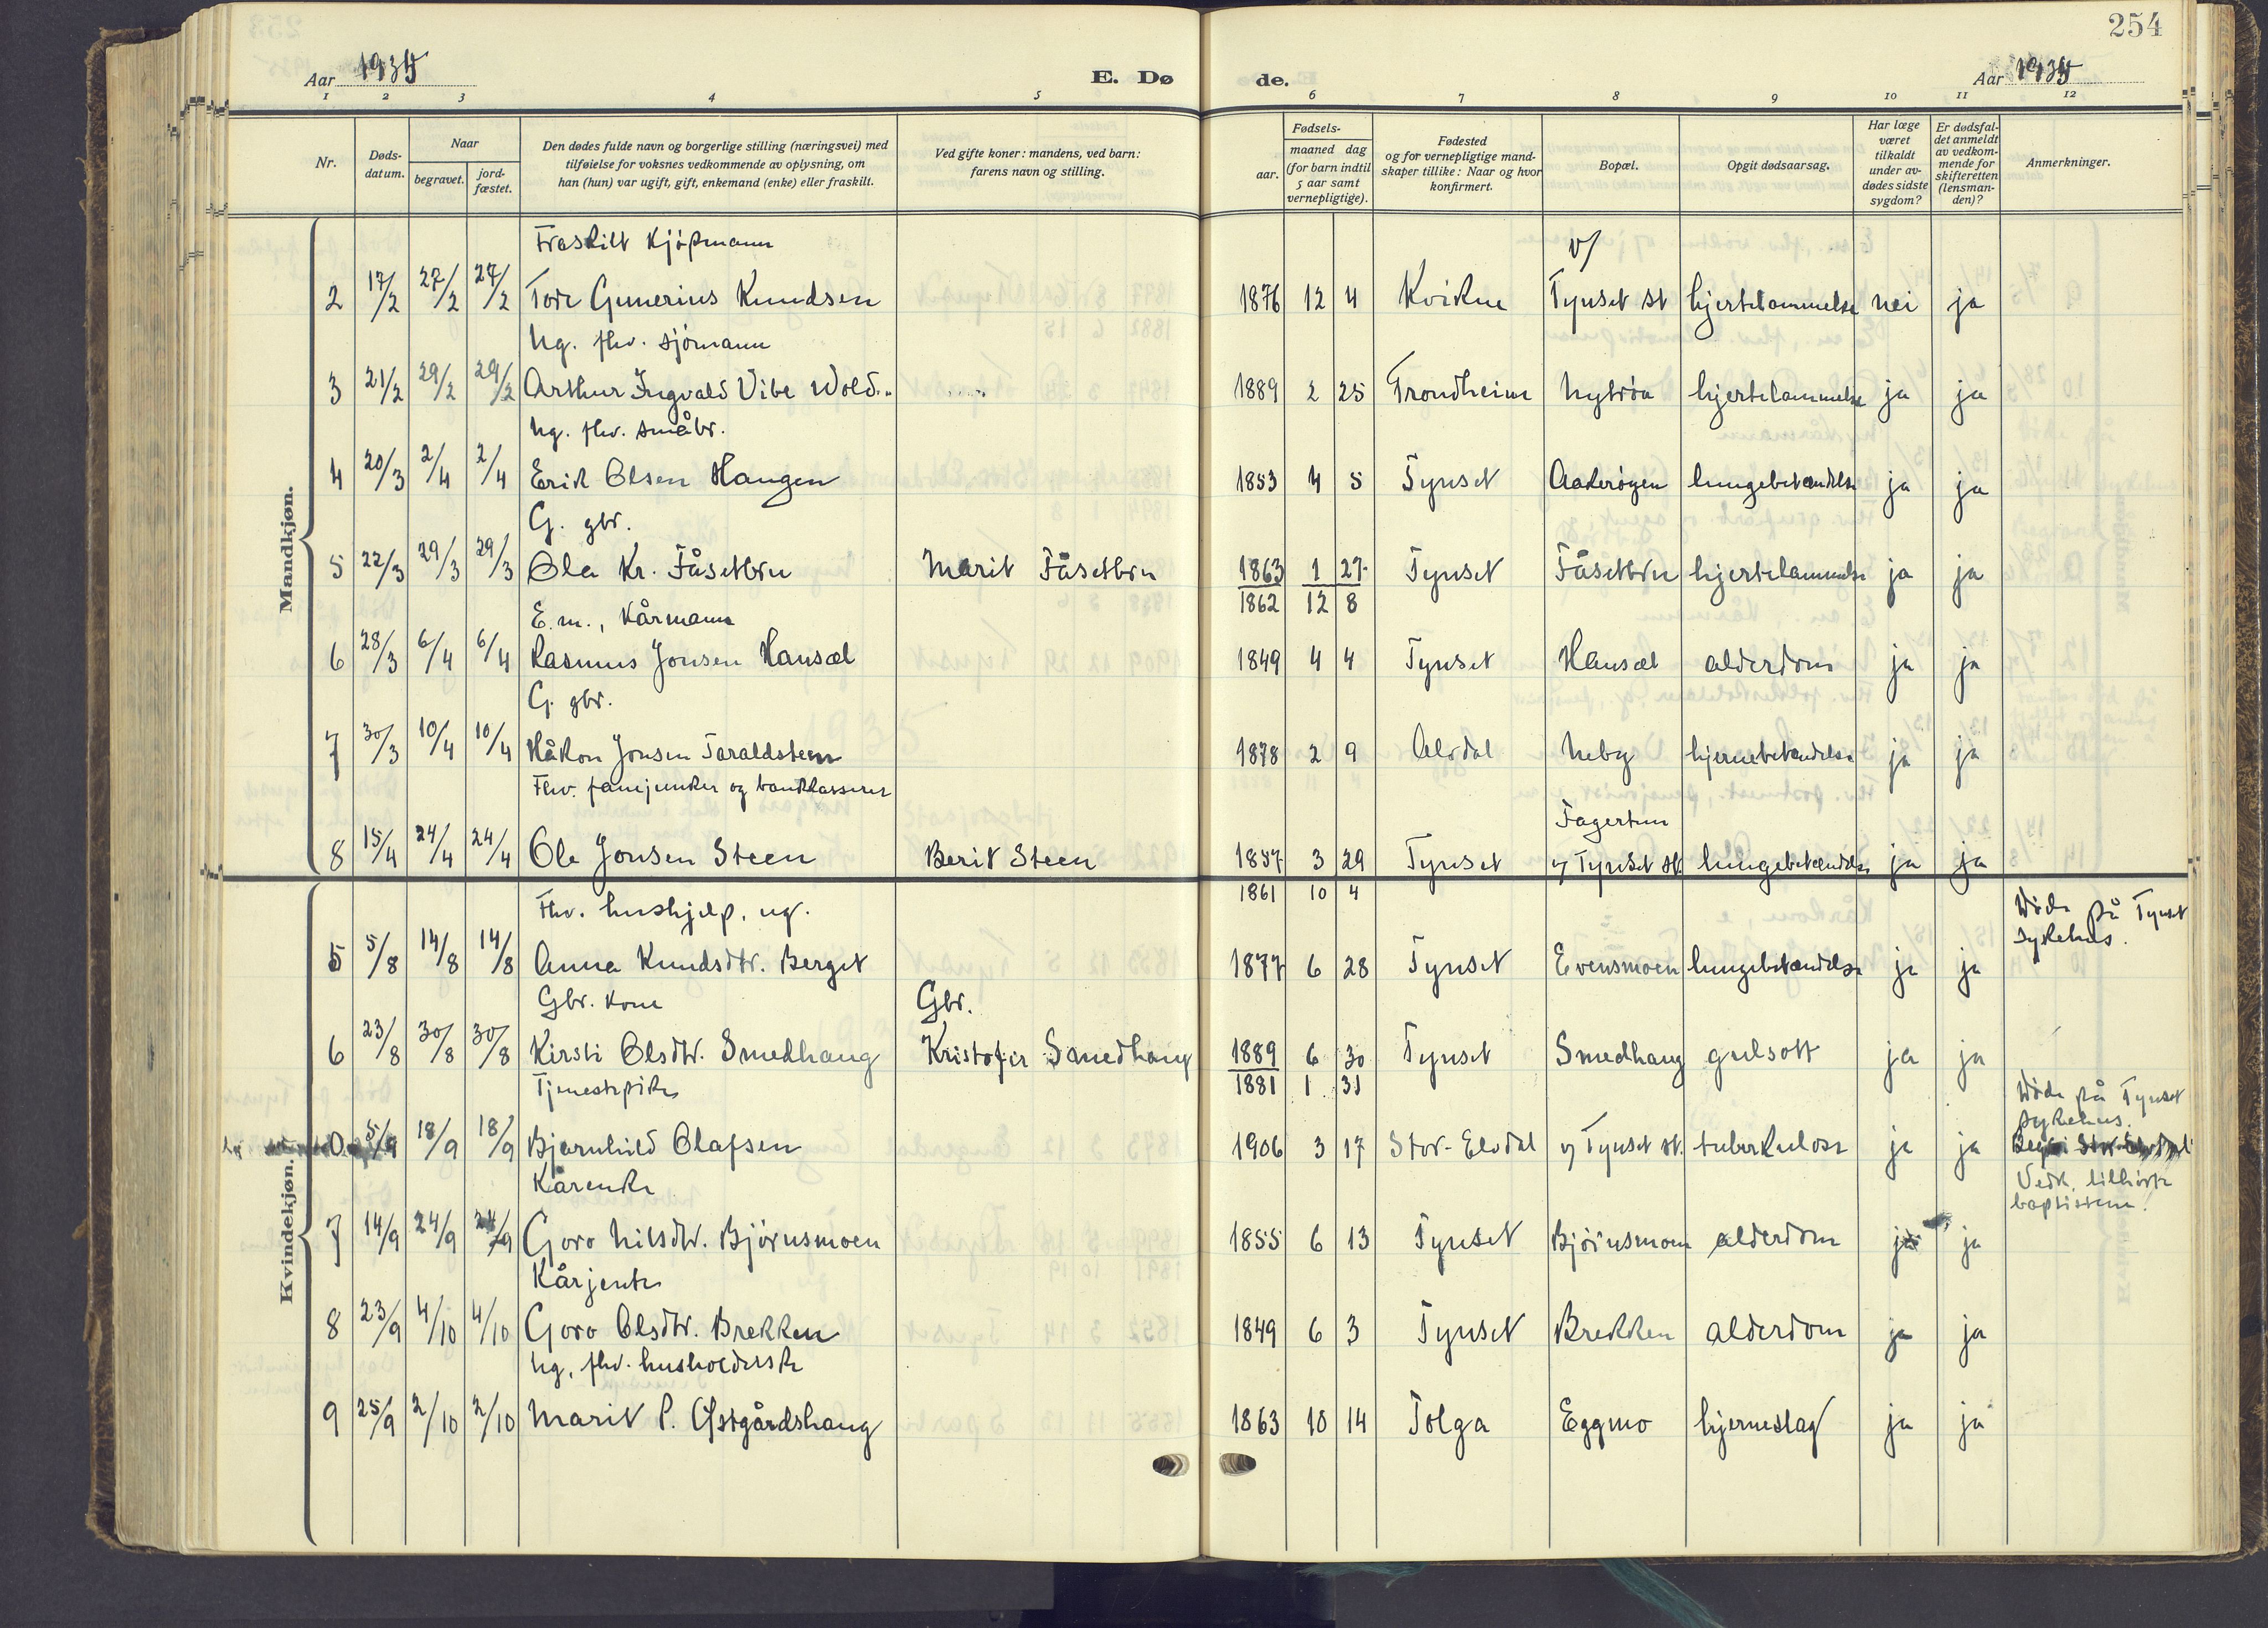 254
Aar 1935
E. Dø
de.
Aar 1935
1 2 3 4 5 6 7 8 9 10 11 12
Nr.
Døds-
datum.
Naar
begravet.
jord-
fæstet.
Den dødes fulde navn og borgerlige stilling (næringsvei) med
tilføielse for voksnes vedkommende av oplysning, om
han (hun) var ugift, gift, enkemand (enke) eller fraskilt.
Ved gifte koner: mandens, ved barn:
farens navn og stilling.
Fødsels-
aar.
maaned dag
(for barn indtil
5 aar samt
vernepligtige).
Fødested
og for vernepligtige mand-
skaper tillike: Naar og hvor
konfirmert.
Bopæl.
Opgit dødsaarsag.
Har læge
været
tilkaldt
under av-
dødes sidste
sygdom?
Er dødsfal-
det anmeldt
av vedkom-
mende for
skifteretten
(lensman-
den)?
Anmerkninger.
Mandkjøn.
Fraskilt Kjøpmann v/
2 17/2 27/2 27/2 Tore Gunerius Knudsen 1876 12 4 Kvikne Tynset st hjertelammelse nei ja
Ug. fhv. sjømann
3 21/2 29/2 29/2 Arthur Ingvald Vibe Wold 1889 2 25 Trondheim Nytrøa hjertelammelse ja ja
Ug. fhv. småbr.
4 20/3 2/4 2/4 Erik Olsen Haugen 1853 4 5 Tynset Aakerøyen lungebetændelse ja ja
G. gbr.
5 22/3 29/3 29/3 Ola Kr. Fåsetbru Marit Fåsetbru 1863 1 27 Tynset Fåsetbru hjertelammelse ja ja
1862 12 8
E.m., Kårmann
6 28/3 6/4 6/4 Rasmus Jonsen Hansæl 1849 4 4 Tynset Hansæl alderdom ja ja
G. gbr.
7 30/3 10/4 10/4 Håkon Jonsen Taraldsteen 1878 2 9 Alvdal Neby hjernebetændelse ja ja
Fhv. fanejunker og bankkasserer
Fagertun
8 15/4 24/4 24/4 Ole Jonsen Steen Berit Steen 1857 3 29 Tynset v/ Tynset st. lungebetændelse ja ja
1861 10 4
Kvindekjøn.
Fhv. hushjelp, ug.
Døde på Tynset
sykehus.
5 5/8 14/8 14/8 Anna Knudsdtr. Berget 1877 6 28 Tynset Evensmoen lungebetændelse ja ja
Gbr. kone Gbr.
6 23/8 30/8 30/8 Kirsti Olsdtr. Smedhaug Kristofer Smedhaug 1889 6 30 Tynset Smedhaug gulsott ja ja
1881 1 31
Tjenestepike
Døde på Tynset
sykehus.
0 5/9 18/9 18/9 Bjarnhild Olafsen 1906 3 17 Stor-Elvdal v/ Tynset st. tuberkulose ja ja
Vedk. tilhørte
baptistene!
Kårenke
7 14/9 24/9 24/9 Goro Nilsdtr. Bjørnsmoen 1855 6 13 Tynset Bjørnsmoen alderdom ja ja
Kårjente
8 23/9 4/10 4/10 Goro Olsdtr. Brekken 1849 6 3 Tynset Brekken alderdom ja ja
Ug, fhv. husholderske
9 25/9 2/10 2/10 Marit P. Østgårdshaug 1863 10 14 Tolga Eggmo hjerneslag ja ja